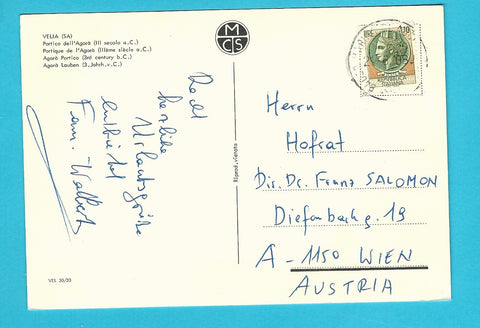 VELIA (SA)
Portico dell'Agorà (III secolo a.C.)
Portique de l'Agorà (IIIème siècle a.C.)
Agorà Portico (3rd century b.C.)
Agorà Lauben (3. Jahrh. v.C.)
MCS
Recht
herzliche
Urlaubsgrüße
entbietet
Fam. Walbert
VEL 30/20
Riprod. vietata
Herrn
Hofrat
Dir. Dr. Franz SALOMON
Diefenbachg. 19
A-1150 WIEN
AUSTRIA